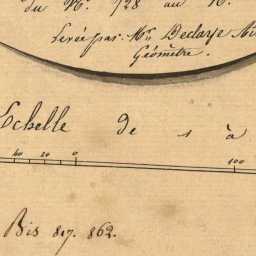 du N°. 728 au N°.
Levée par Mr.
Géomètre.
Echelle de 1 à
40 20 0 100
Bis 817. 862.